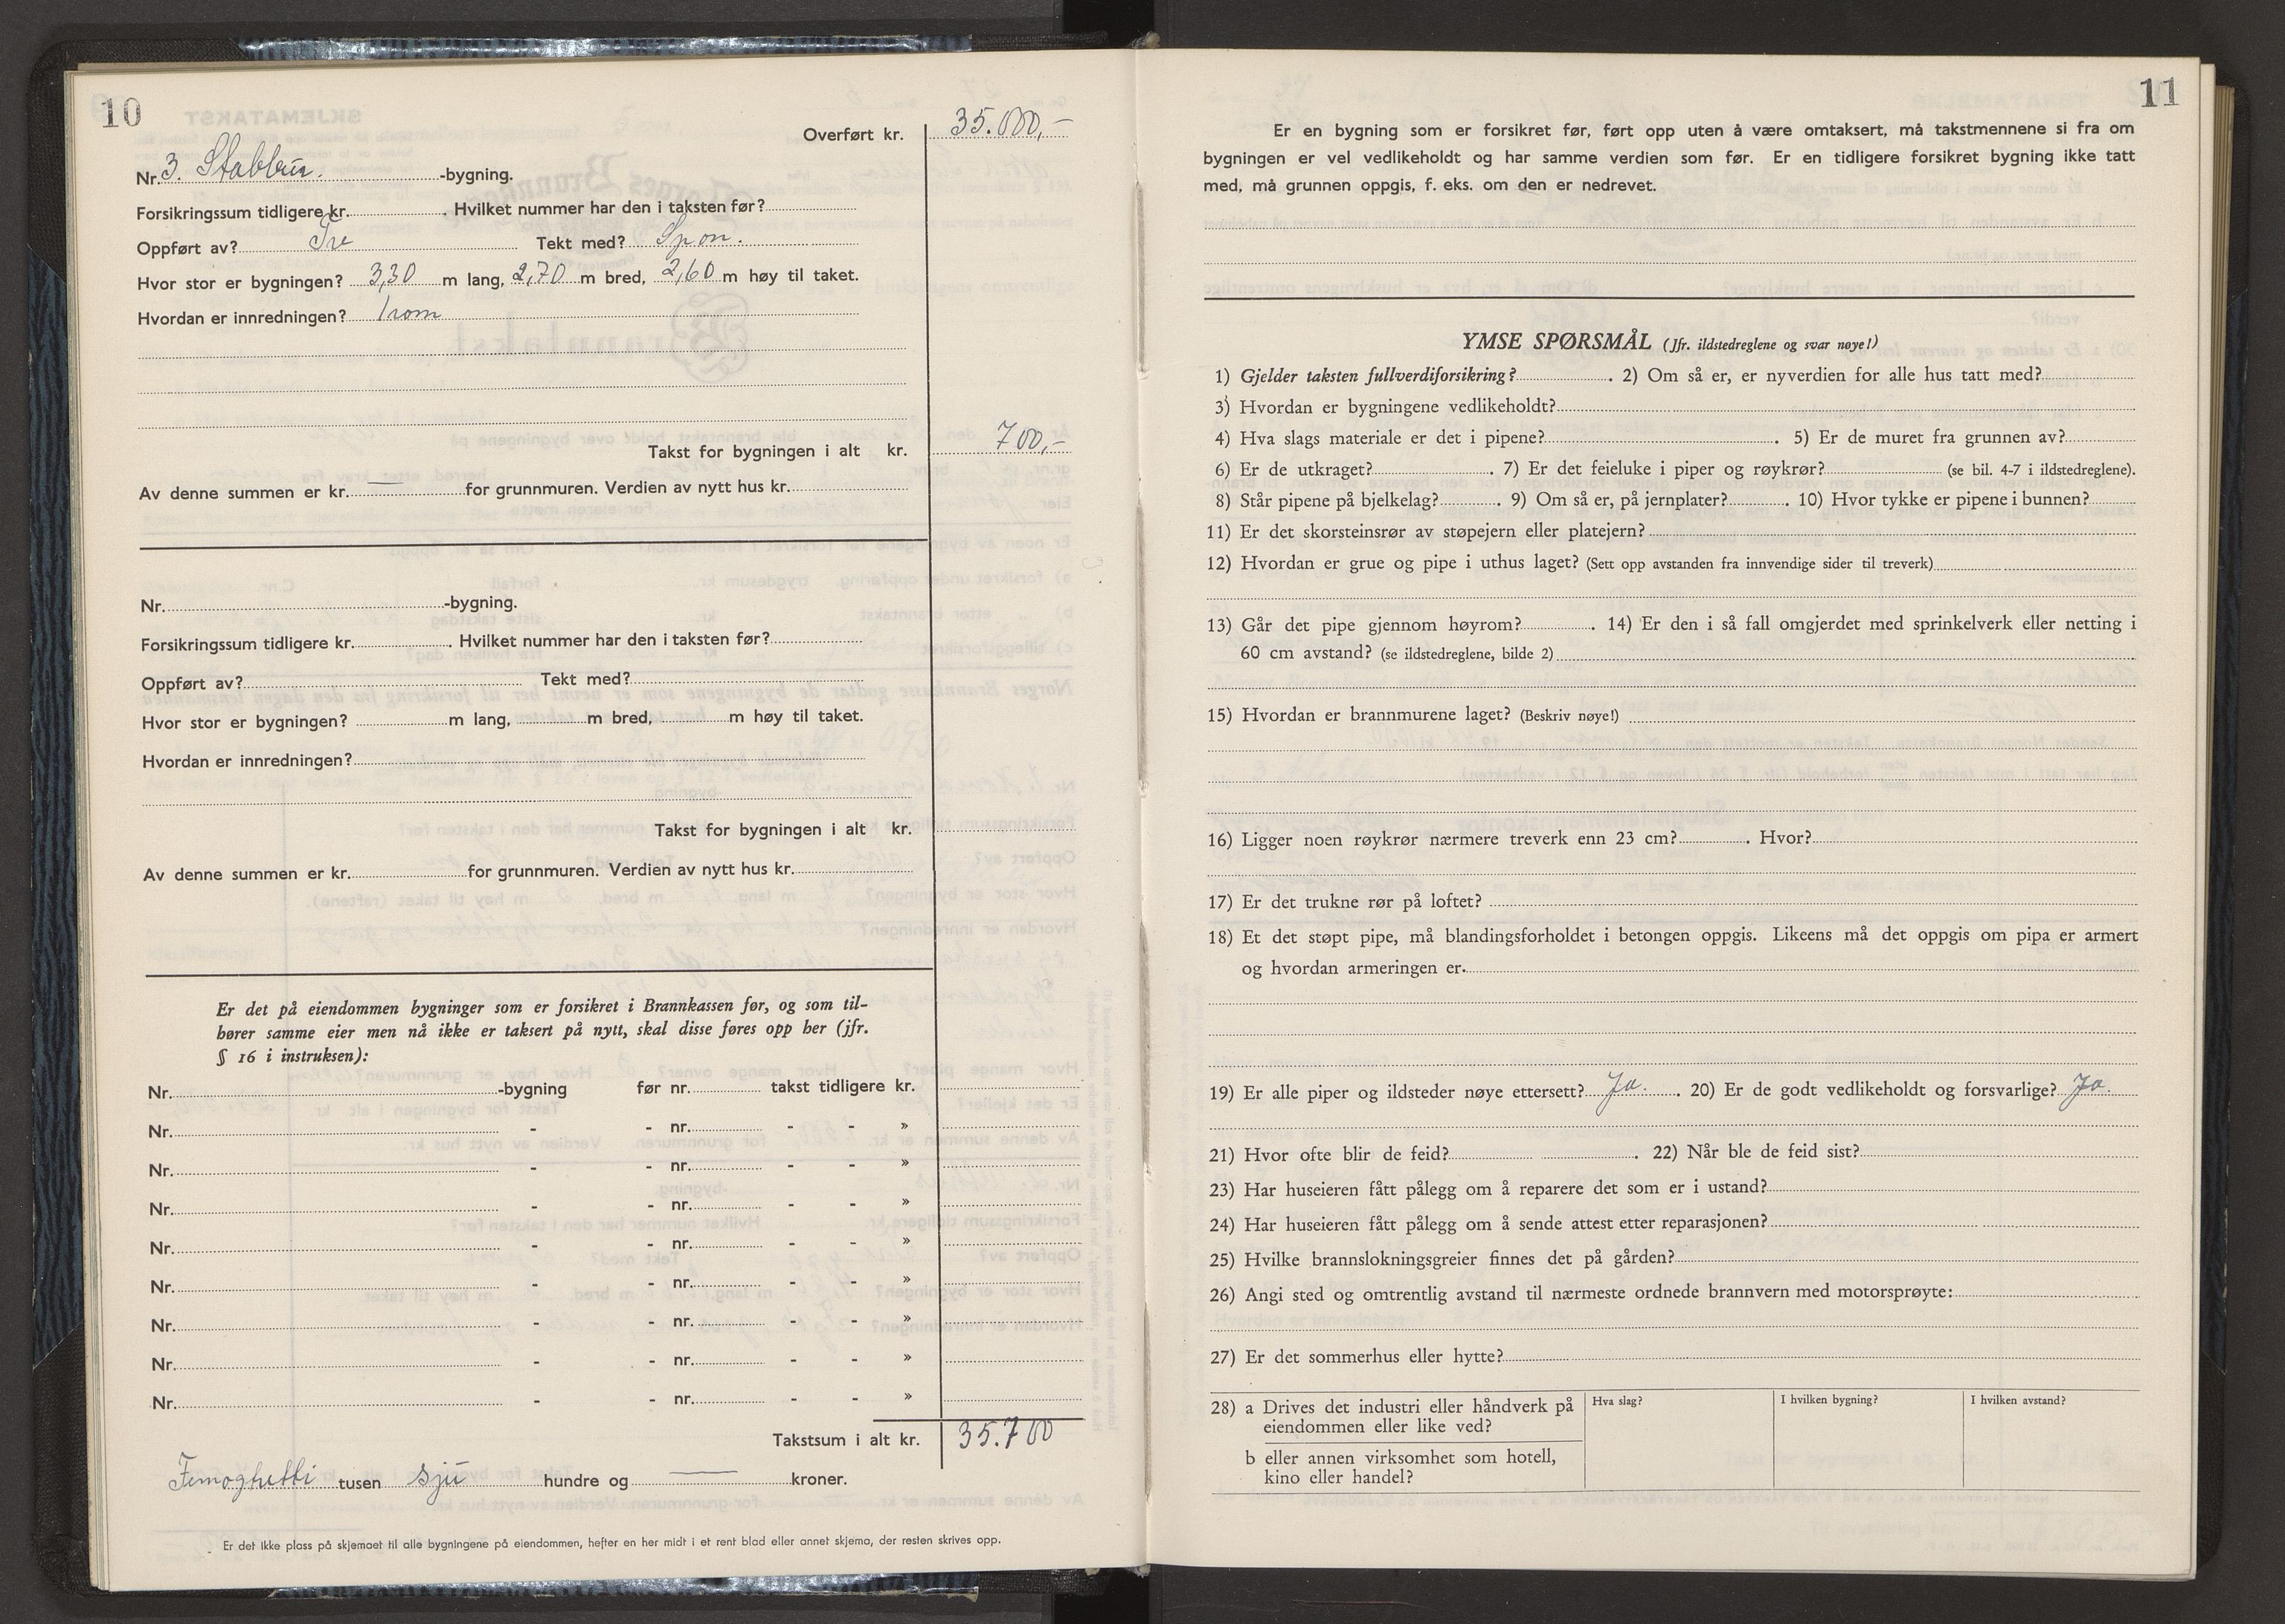 10
Overført kr. 35.000,-
Nr. 3. Stabbur. -bygning.
Forsikringssum tidligere kr. . Hvilket nummer har den i taksten før?
Oppført av? Tre Tekt med? Spon.
Hvor stor er bygningen? 3,30 m lang, 2,70 m bred, 2,60 m høy til taket.
Hvordan er innredningen? 1 rom
Takst for bygningen i alt kr. 700,-
Av denne summen er kr. — for grunnmuren. Verdien av nytt hus kr.
Nr. -bygning.
Forsikringssum tidligere kr. . Hvilket nummer har den i taksten før?
Oppført av? Tekt med?
Hvor stor er bygningen? m lang, m bred, m høy til taket.
Hvordan er innredningen?
Takst for bygningen i alt kr.
Av denne summen er kr. for grunnmuren. Verdien av nytt hus kr.
Er det på eiendommen bygninger som er forsikret i Brannkassen før, og som til-
hører samme eier men nå ikke er taksert på nytt, skal disse føres opp her (jfr.
§ 16 i instruksen):
Nr. -bygning før nr. takst tidligere kr.
Nr. - - nr. - - »
Nr. - - nr. - - »
Nr. - - nr. - - »
Nr. - - nr. - - »
Nr. - - nr. - - »
Nr. - - nr. - - »
Nr. - - nr. - - »
Nr. - - nr. - - »
Takstsum i alt kr. 35.700
Femogtretti tusen sju hundre og — kroner.
Er det ikke plass på skjemaet til alle bygningene på eiendommen, hefter en her midt i et rent blad eller annet skjema, der resten skrives opp.
11
Er en bygning som er forsikret før, ført opp uten å være omtaksert, må takstmennene si fra om
bygningen er vel vedlikeholdt og har samme verdien som før. Er en tidligere forsikret bygning ikke tatt
med, må grunnen oppgis, f. eks. om den er nedrevet.
YMSE SPØRSMÅL (Jfr. ildstedreglene og svar nøye!)
1) Gjelder taksten fullverdiforsikring? . 2) Om så er, er nyverdien for alle hus tatt med?
3) Hvordan er bygningene vedlikeholdt?
4) Hva slags materiale er det i pipene? . 5) Er de muret fra grunnen av?
6) Er de utkraget? . 7) Er det feieluke i piper og røykrør? (se bil. 4-7 i ildstedreglene).
8) Står pipene på bjelkelag? . 9) Om så er, på jernplater? . 10) Hvor tykke er pipene i bunnen?
11) Er det skorsteinsrør av støpejern eller platejern?
12) Hvordan er grue og pipe i uthus laget? (Sett opp avstanden fra innvendige sider til treverk)
13) Går det pipe gjennom høyrom? . 14) Er den i så fall omgjerdet med sprinkelverk eller netting i
60 cm avstand? (se ildstedreglene, bilde 2)
15) Hvordan er brannmurene laget? (Beskriv nøye!)
16) Ligger noen røykrør nærmere treverk enn 23 cm? . Hvor?
17) Er det trukne rør på loftet?
18) Et det støpt pipe, må blandingsforholdet i betongen oppgis. Likeens må det oppgis om pipa er armert
og hvordan armeringen er.
19) Er alle piper og ildsteder nøye ettersett? Ja. . 20) Er de godt vedlikeholdt og forsvarlige? Ja.
21) Hvor ofte blir de feid? . 22) Når ble de feid sist?
23) Har huseieren fått pålegg om å reparere det som er i ustand?
24) Har huseieren fått pålegg om å sende attest etter reparasjonen?
25) Hvilke brannslokningsgreier finnes det på gården?
26) Angi sted og omtrentlig avstand til nærmeste ordnede brannvern med motorsprøyte:
27) Er det sommerhus eller hytte?
28) a Drives det industri eller håndverk på Hva slag? I hvilken bygning? I hvilken avstand?
eiendommen eller like ved?
b eller annen virksomhet som hotell,
kino eller handel?